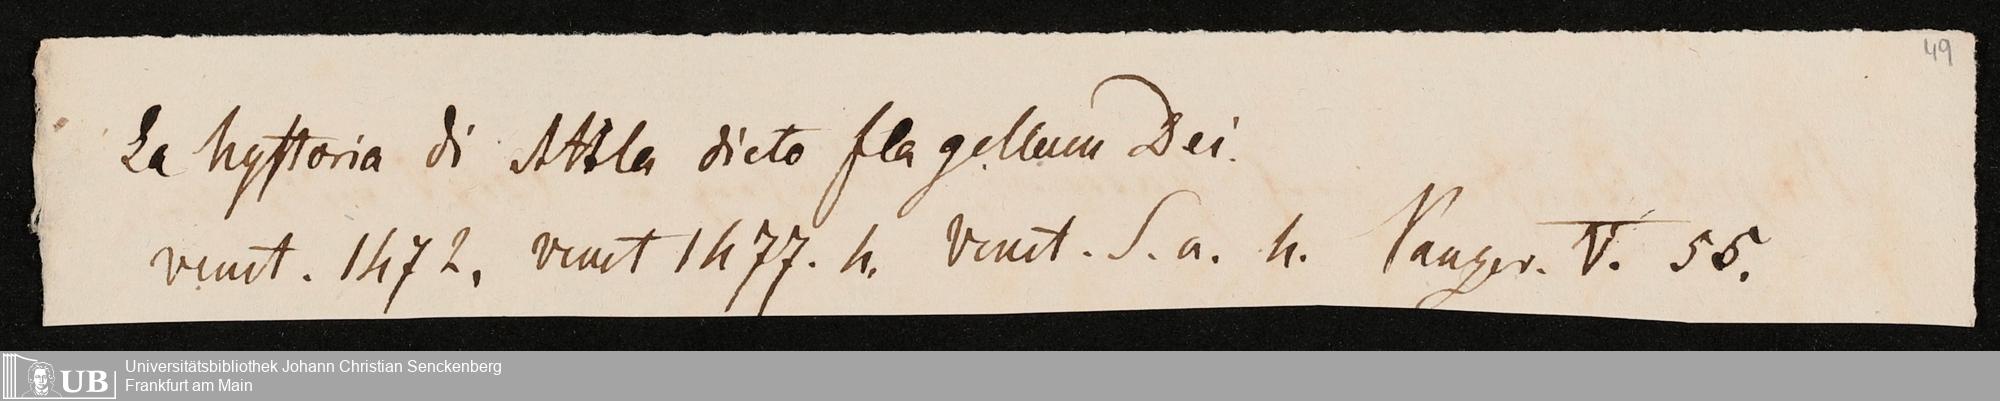 49
La hyſtoria di Attila dicto flagellum Dei.
venet. 1472, venet 1477. 4. Venet. S. a. 4. Panzer. V. 55.
Universitätsbibliothek Johann Christian Senckenberg
Frankfurt am Main
UB